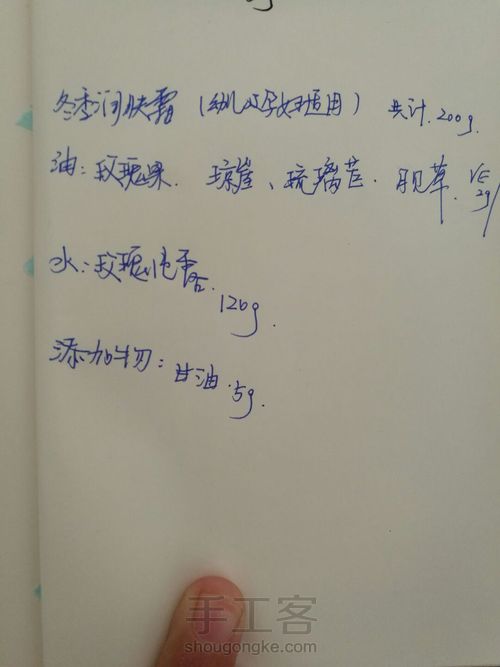 冬季润肤霜（幼儿及孕妇适用） 共计.200g.
油：玫瑰果. 琼崖、琉璃苣. 月见草. VE 2g
水：玫瑰纯露. 120g.
添加物：甘油. 5g.
手工客
shougongke.com